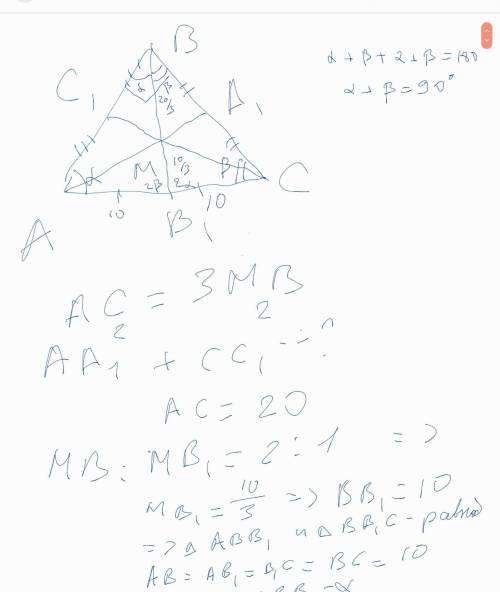 B
α + β + α + β = 180
α + β = 90°
C₁
α
β
20/3
A₁
α
M
10/3
β
C
2β
2α
10
10
A
B₁
AC = 3MB
2
2
AA₁ + CC₁ - ?
AC = 20
MB : MB₁ = 2 : 1 =>
MB₁ = 10/3 => BB₁ = 10
=> △ABB₁ и △BB₁C - равно
AB = AB₁ = B₁C = BC = 10